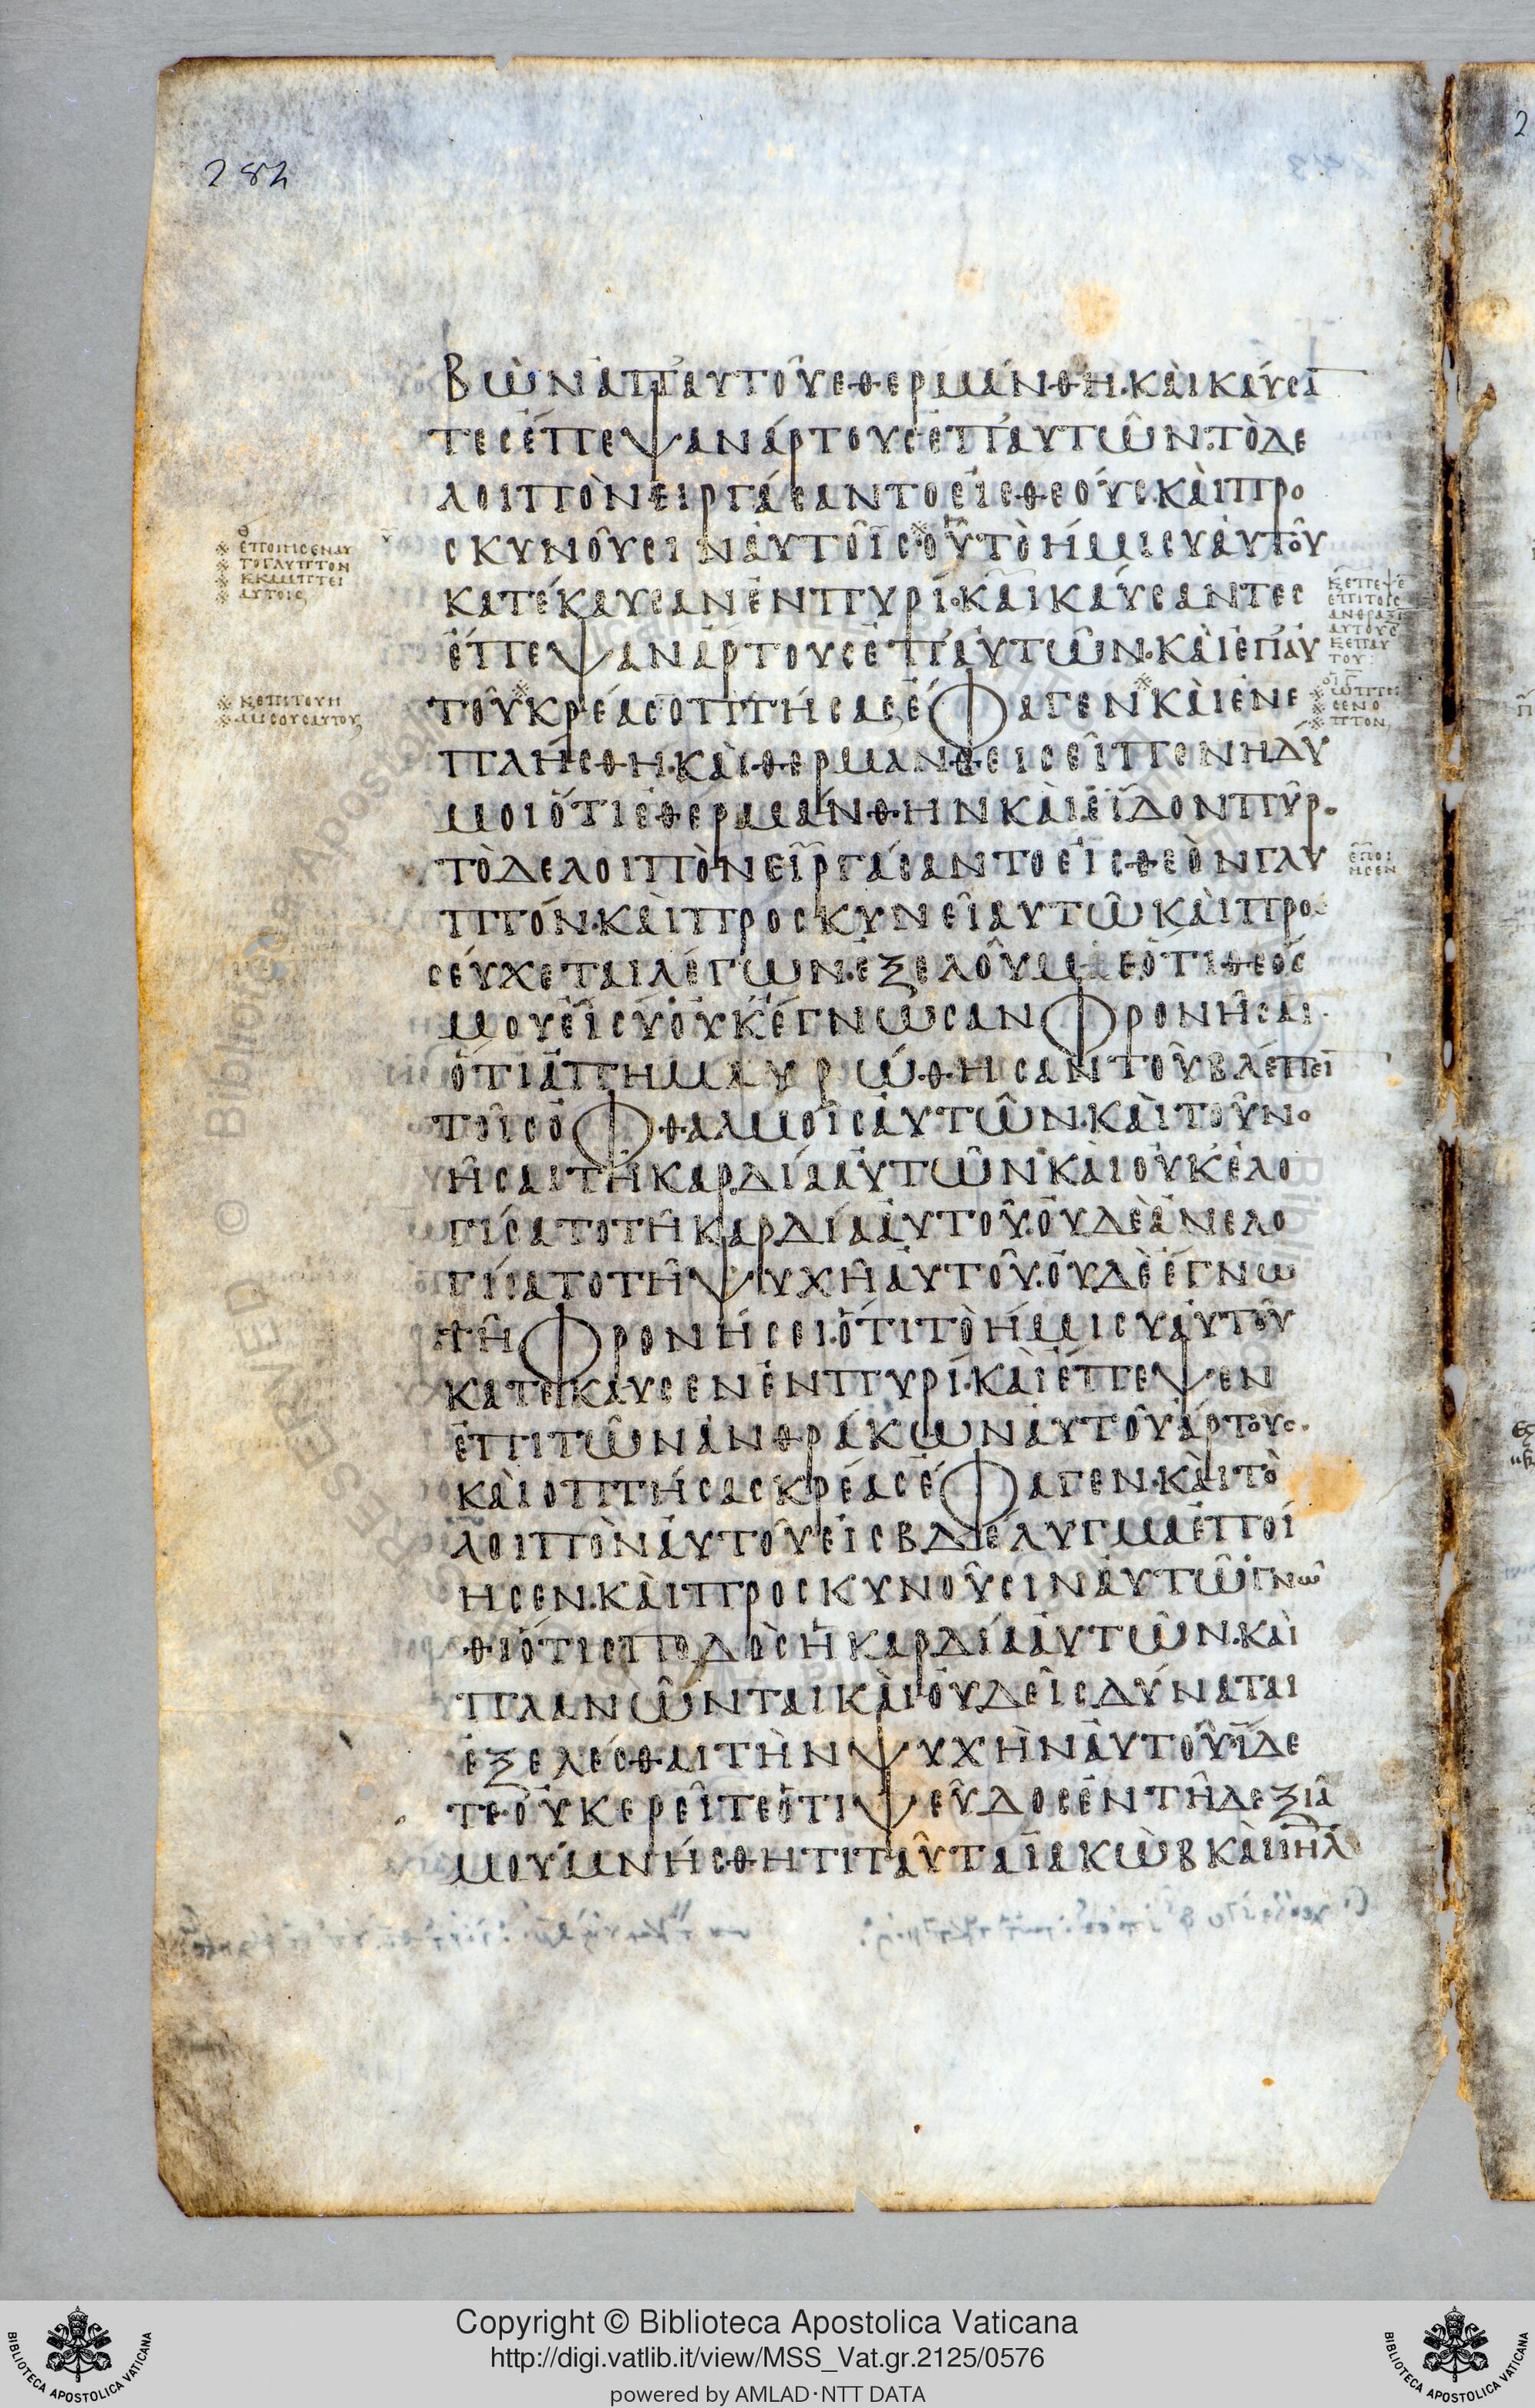 282
βὼν ἀπ' αὐτοῦ ἐθερμάνθη· καὶ καύσα̅
τες ἔπεψαν ἄρτους ἐπ' αὐτῶν· τὸ δὲ
λοιπὸν εἰργάσαντο εἰς θεούς· καὶ προ
σκυνοῦσιν αὐτοῖς οὗ τὸ ἥμισυ αὐτοῦ
κατέκαυσαν ἐν πυρί· καὶ καύσαντες
ἔπεψαν ἄρτους ἐπ' αὐτῶν· καὶ ἐπ' αὐ
τοῦ κρέας ὀπτήσας ἔφαγεν καὶ ἐνε
πλήσθη· καὶ θερμανθεὶς εἶπεν ἡδύ
μοι ὅτι ἐθερμάνθην καὶ εἶδον πῦρ·
τὸ δὲ λοιπὸν εἰργάσαντο εἰς θεὸν γλυ
πτόν· καὶ προσκυνεῖ αὐτῷ καὶ προ
σεύχεται λέγων· ἐξελοῦ με ὅτι θεός
μου εἶ σύ οὐκ ἔγνωσαν φρονῆσαι·
ὅτι ἀπημαυρώθησαν τοῦ βλέπει̅
τοῖς ὀφθαλμοῖς αὐτῶν· καὶ τοῦ νο
ῆσαι τῇ καρδίᾳ αὐτῶν καὶ οὐκ ἐλο
γίσατο τῇ καρδίᾳ αὐτοῦ· οὐδὲ ἀνελο
γίσατο τῇ ψυχῇ αὐτοῦ· οὐδὲ ἔγνω
τῇ φρονήσει· ὅτι τὸ ἥμισυ αὐτοῦ
κατέκαυσεν ἐν πυρί· καὶ ἔπεψεν
ἐπὶ τῶν ἀνθράκων αὐτοῦ ἄρτους·
καὶ ὀπτήσας κρέας ἔφαγεν· καὶ τὸ
λοιπὸν αὐτοῦ εἰς βδέλυγμα ἐποί
ησεν· καὶ προσκυνοῦσιν αὐτῷ γνῶ
θι ὅτι σποδὸς ἡ καρδία αὐτῶν· καὶ
πλανῶνται καὶ οὐδεὶς δύναται
ἐξελέσθαι τὴν ψυχὴν αὐτοῦ ἴδε
τε· οὐκ ἐρεῖτε ὅτι ψεῦδος ἐν τῇ δεξιᾷ
μου μνήσθητι ταῦτα ἰακὼβ καὶ ιη̅λ
θ
※ εποιησεν αυ
※ το γλυπτον
※ κ κυπτει
※ αυτοις
※ κ επι του η
※ μισους αυτου
κ επεψε
επι τοις
ανθραξι
αυτους
κ επ αυ
του
οι γ
※ ωπτη
※ σεν ο
※ πτον
εποι
ησεν
Copyright © Biblioteca Apostolica Vaticana
http://digi.vatlib.it/view/MSS_Vat.gr.2125/0576
powered by AMLAD·NTT DATA
BIBLIOTECA APOSTOLICA VATICANA
BIBLIOTECA APOSTOLICA VATICANA